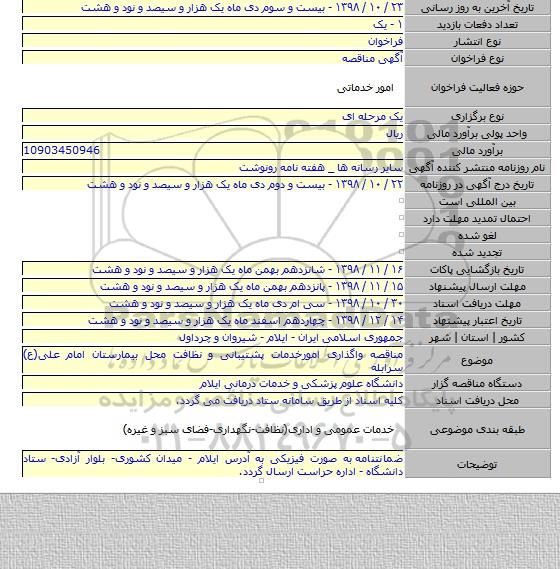 تاریخ آخرین به روز رسانی ۲۳ / ۱۰ / ۱۳۹۸ - بیست و سوم دی ماه یک هزار و سیصد و نود و هشت
تعداد دفعات بازدید ۱ - یک
نوع انتشار فراخوان
نوع فراخوان آگهی مناقصه
حوزه فعالیت فراخوان امور خدماتی
نوع برگزاری یک مرحله ای
واحد پولی برآورد مالی ریال
برآورد مالی 10903450946
نام روزنامه منتشر کننده آگهی سایر رسانه ها _ هفته نامه رونوشت
تاریخ درج آگهی در روزنامه ۲۲ / ۱۰ / ۱۳۹۸ - بیست و دوم دی ماه یک هزار و سیصد و نود و هشت
بین المللی است
احتمال تمدید مهلت دارد
لغو شده
تجدید شده
تاریخ بازگشایی پاکات ۱۶ / ۱۱ / ۱۳۹۸ - شانزدهم بهمن ماه یک هزار و سیصد و نود و هشت
مهلت ارسال پیشنهاد ۱۵ / ۱۱ / ۱۳۹۸ - پانزدهم بهمن ماه یک هزار و سیصد و نود و هشت
مهلت دریافت اسناد ۳۰ / ۱۰ / ۱۳۹۸ - سی ام دی ماه یک هزار و سیصد و نود و هشت
تاریخ اعتبار پیشنهاد ۱۴ / ۱۲ / ۱۳۹۸ - چهاردهم اسفند ماه یک هزار و سیصد و نود و هشت
کشور | استان | شهر جمهوری اسلامی ایران - ایلام - شیروان و چرداول
موضوع مناقصه واگذاری امورخدمات پشتیبانی و نظافت محل بیمارستان امام علی(ع)
سرابله
دستگاه مناقصه گزار دانشگاه علوم پزشکی و خدمات درمانی ایلام
محل دریافت اسناد کلیه اسناد از طریق سامانه ستاد دریافت می گردد.
طبقه بندی موضوعی خدمات عمومی و اداری(نظافت-نگهداری-فضای سبز و غیره)
توضیحات ضمانتنامه به صورت فیزیکی به آدرس ایلام - میدان کشوری- بلوار آزادی- ستاد
دانشگاه - اداره حراست ارسال گردد.